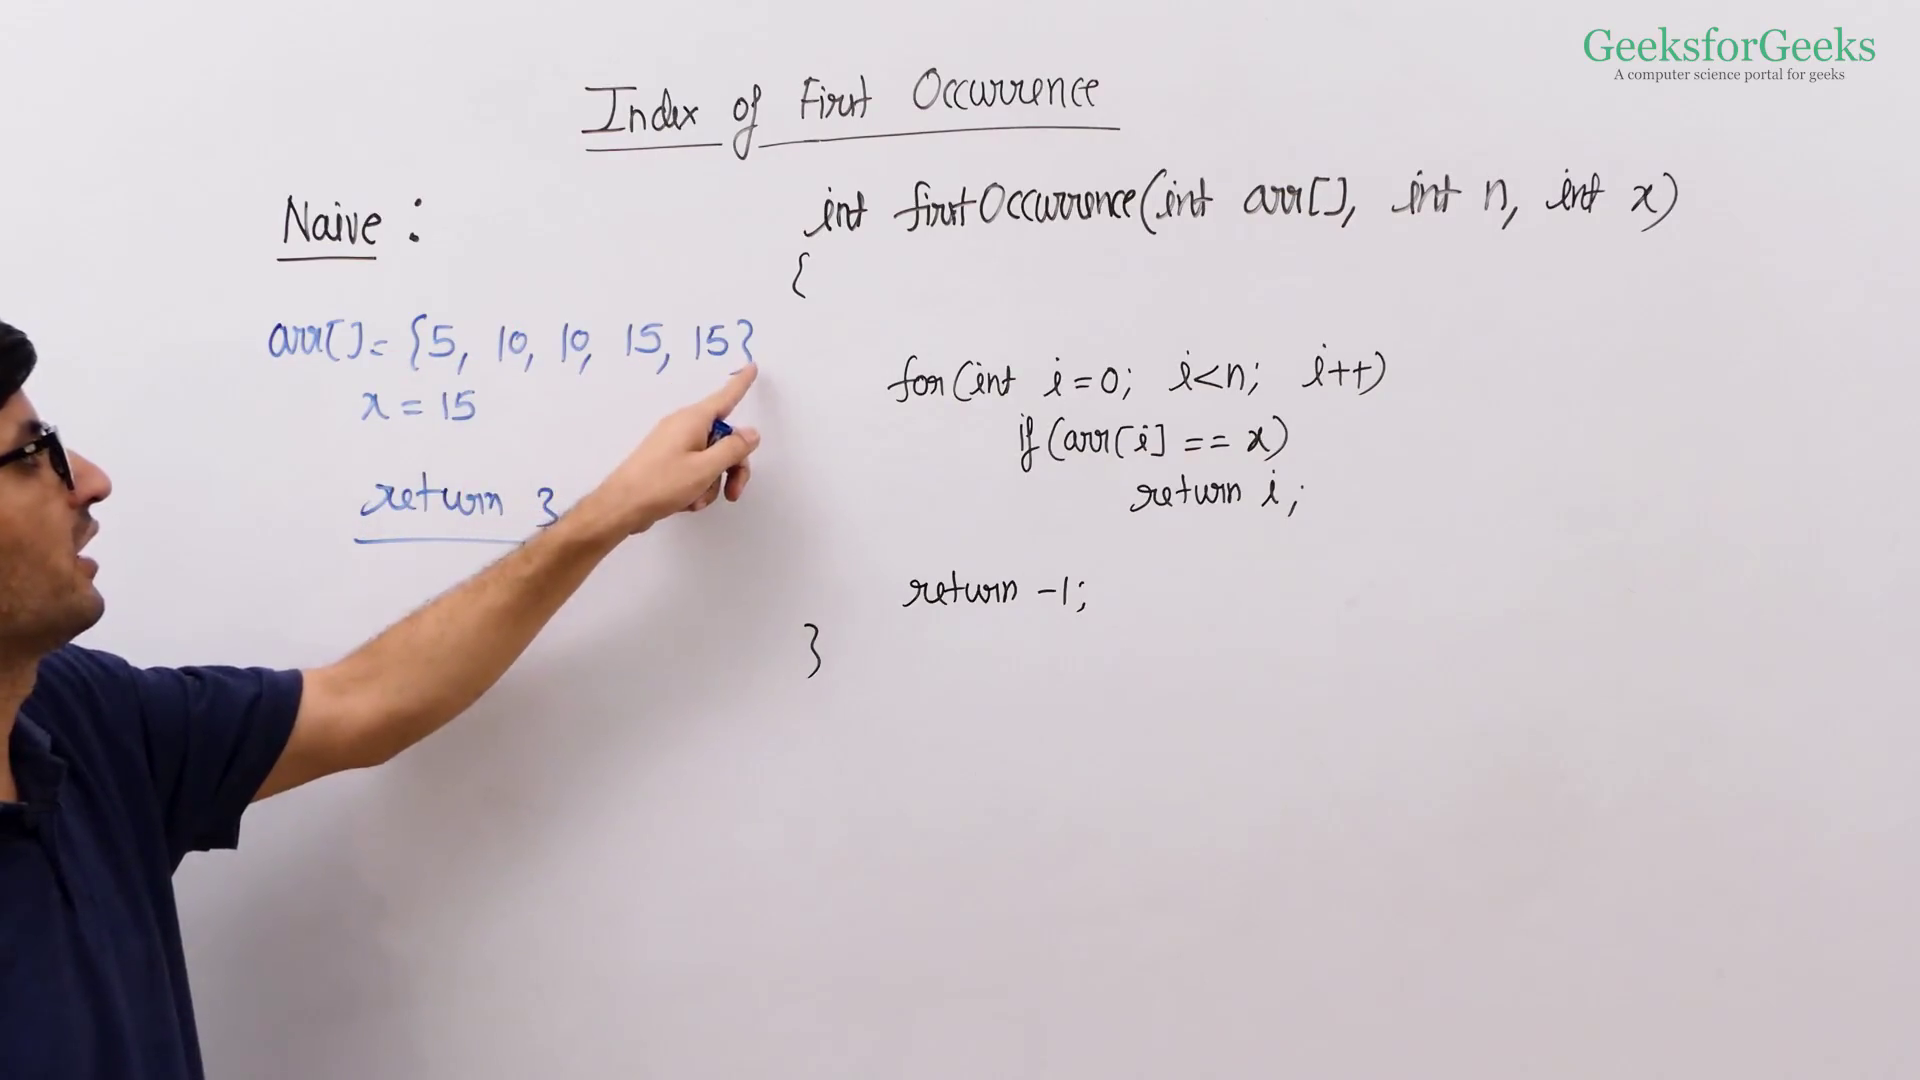 GeeksforGeeks
A computer science portal for geeks
Index of First Occurrence
Naive :
arr[] = {5, 10, 10, 15, 15}
x = 15
return 3
int firstOccurrence(int arr[], int n, int x)
{
for(int i=0; i<n; i++)
if(arr[i] == x)
return i;
return -1;
}